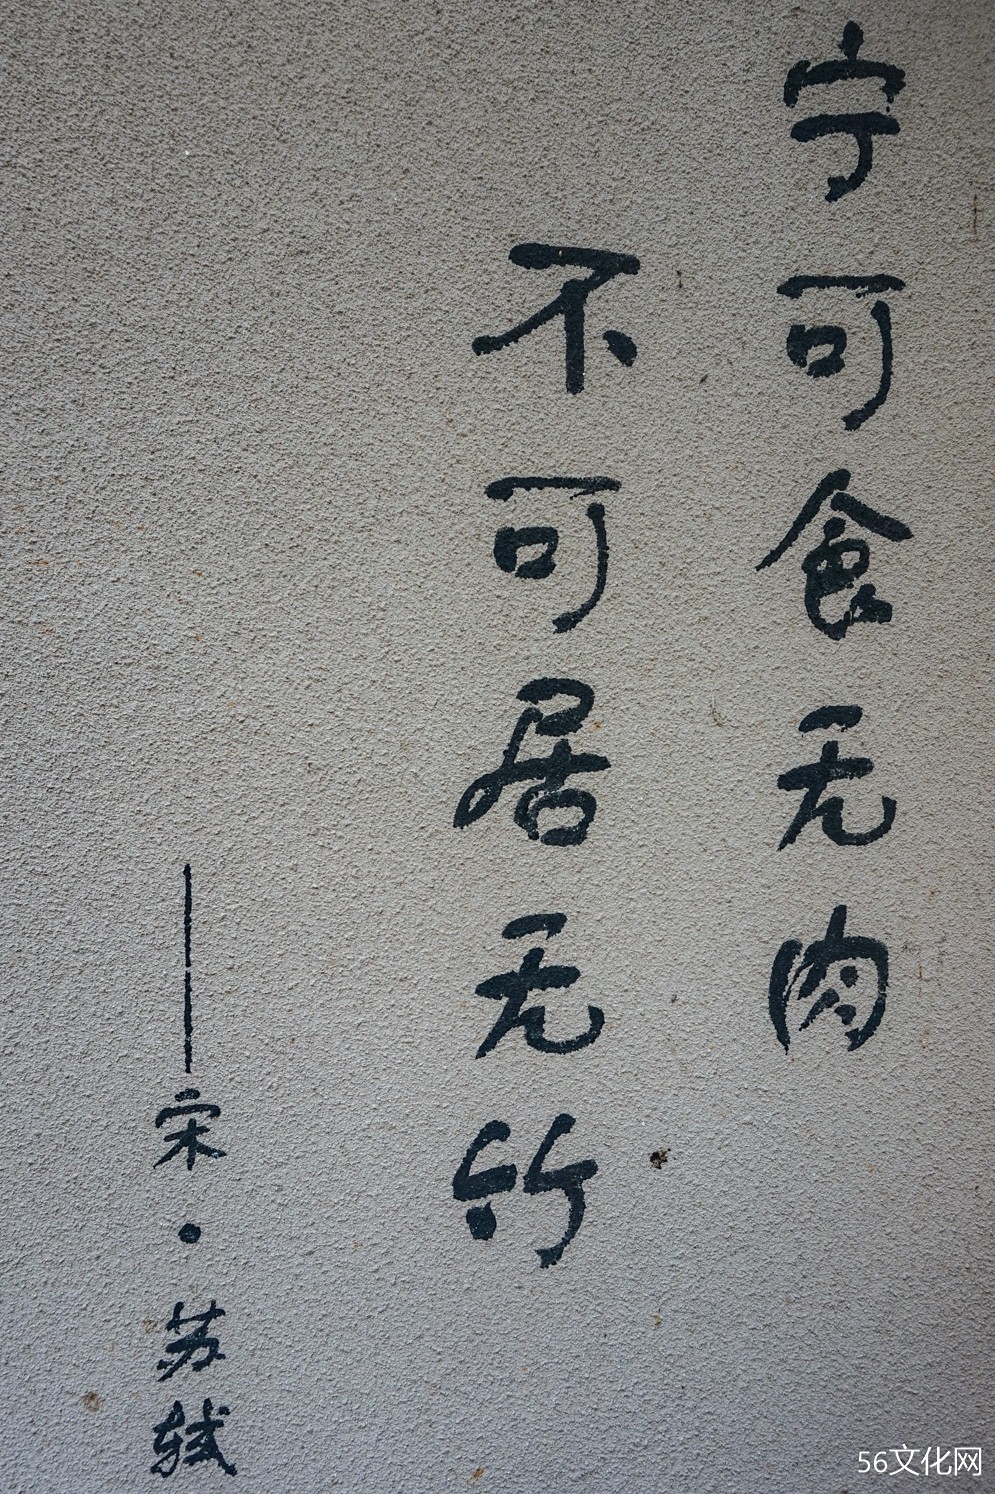 宁可食无肉
不可居无竹
——宋·苏轼
56文化网